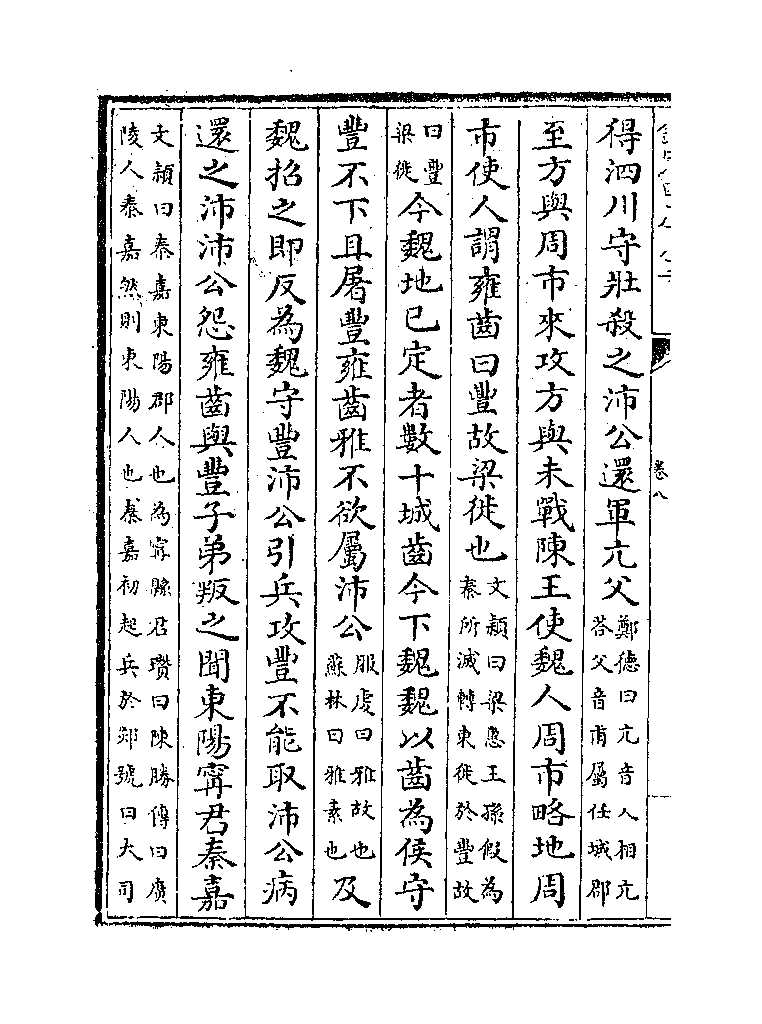 得泗川守壯殺之沛公還軍亢父鄭德曰亢音人相亢荅父音甫屬任城郡
至方與周市來攻方與未戰陳王使魏人周市略地周
市使人謂雍齒曰豐故梁徙也文穎曰梁惠王孫假為秦所滅轉東徙於豐故
曰豐梁徙今魏地已定者數十城齒今下魏魏以齒為侯守
豐不下且屠豐雍齒雅不欲屬沛公服虔曰雅故也蘇林曰雅素也及
魏招之即反為魏守豐沛公引兵攻豐不能取沛公病
還之沛沛公怨雍齒與豐子弟叛之聞東陽甯君秦嘉
文穎曰秦嘉東陽郡人也為甯縣君瓚曰陳勝傳曰廣陵人秦嘉然則東陽人也秦嘉初起兵於郯號曰大司
卷八